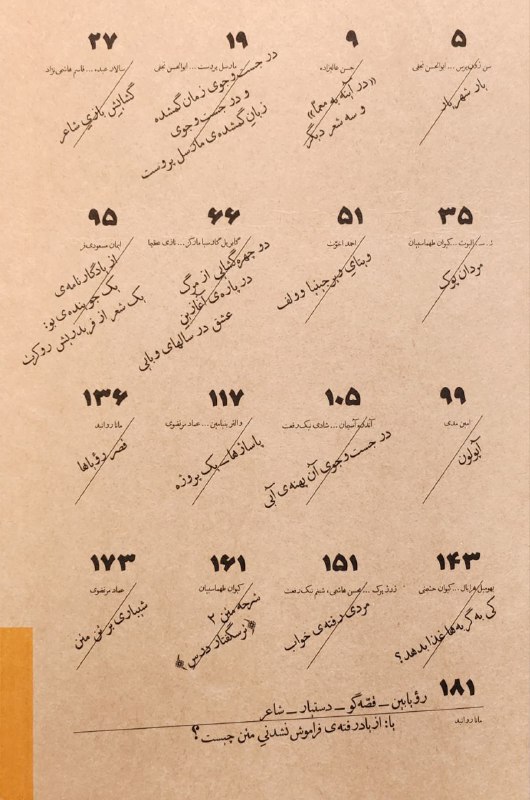 ۵
سن ژون پرس ... ابوالحسن نجفی
بار شهریار
۹
حسن عالیزاده
«در آینه به معما»
و سه شعر دیگر
۱۹
مارسل پروست ... ابوالحسن نجفی
در جست‌وجوی زمان گمشده
و در جست‌وجوی
زبان گمشده‌ی مارسل پروست
۲۷
سالار عبده ... قاسم هاشمی‌نژاد
گشایش بازیِ شاعر
۳۵
ت. س. الیوت ... کیوان طهماسبیان
مردان پوک
۵۱
احمد اخوّت
وبنایِ ویرجینیا وولف
۶۶
گابریل گارسیا مارکز ... نازی عظیما
دو چهره‌گشایی از مرگ
درباره‌ی آغازینِ
عشق در سالهای وبایی
۹۵
ایمان مسعودی‌فر
از یادگارنامه‌ی
یک جوینده‌ی بو:
یک شعر از فریدریش روکرت
۹۹
امین مدی
آپولون
۱۰۵
آلفرد آسیمان ... شادی نیک‌رفعت
در جست‌وجوی آن پهنه‌ی آبی
۱۱۷
والتر بنیامین ... عماد مرتضوی
پاساژها ـ یک پروژه
۱۳۶
مانا روانبد
قصر رؤیاها
۱۴۳
... کیوان خلجی
کی به گربه‌ها غذا بدهد؟
۱۵۱
ژرژ پرک ... محسن هاشمی، شبنم نیک‌رفعت
مردی رفته‌ی خواب
۱۶۱
کیوان طهماسبیان
شرحه متن ۲
﴿در سگفتار درس﴾
۱۷۳
عماد مرتضوی
شیاری بر تنِ متن
۱۸۱
مانا روانبد
رؤیابین ـ قصّه‌گو ـ دستیار ـ شاعر
یا: از یاد رفته‌ی فراموش نشدنیِ متن چیست؟